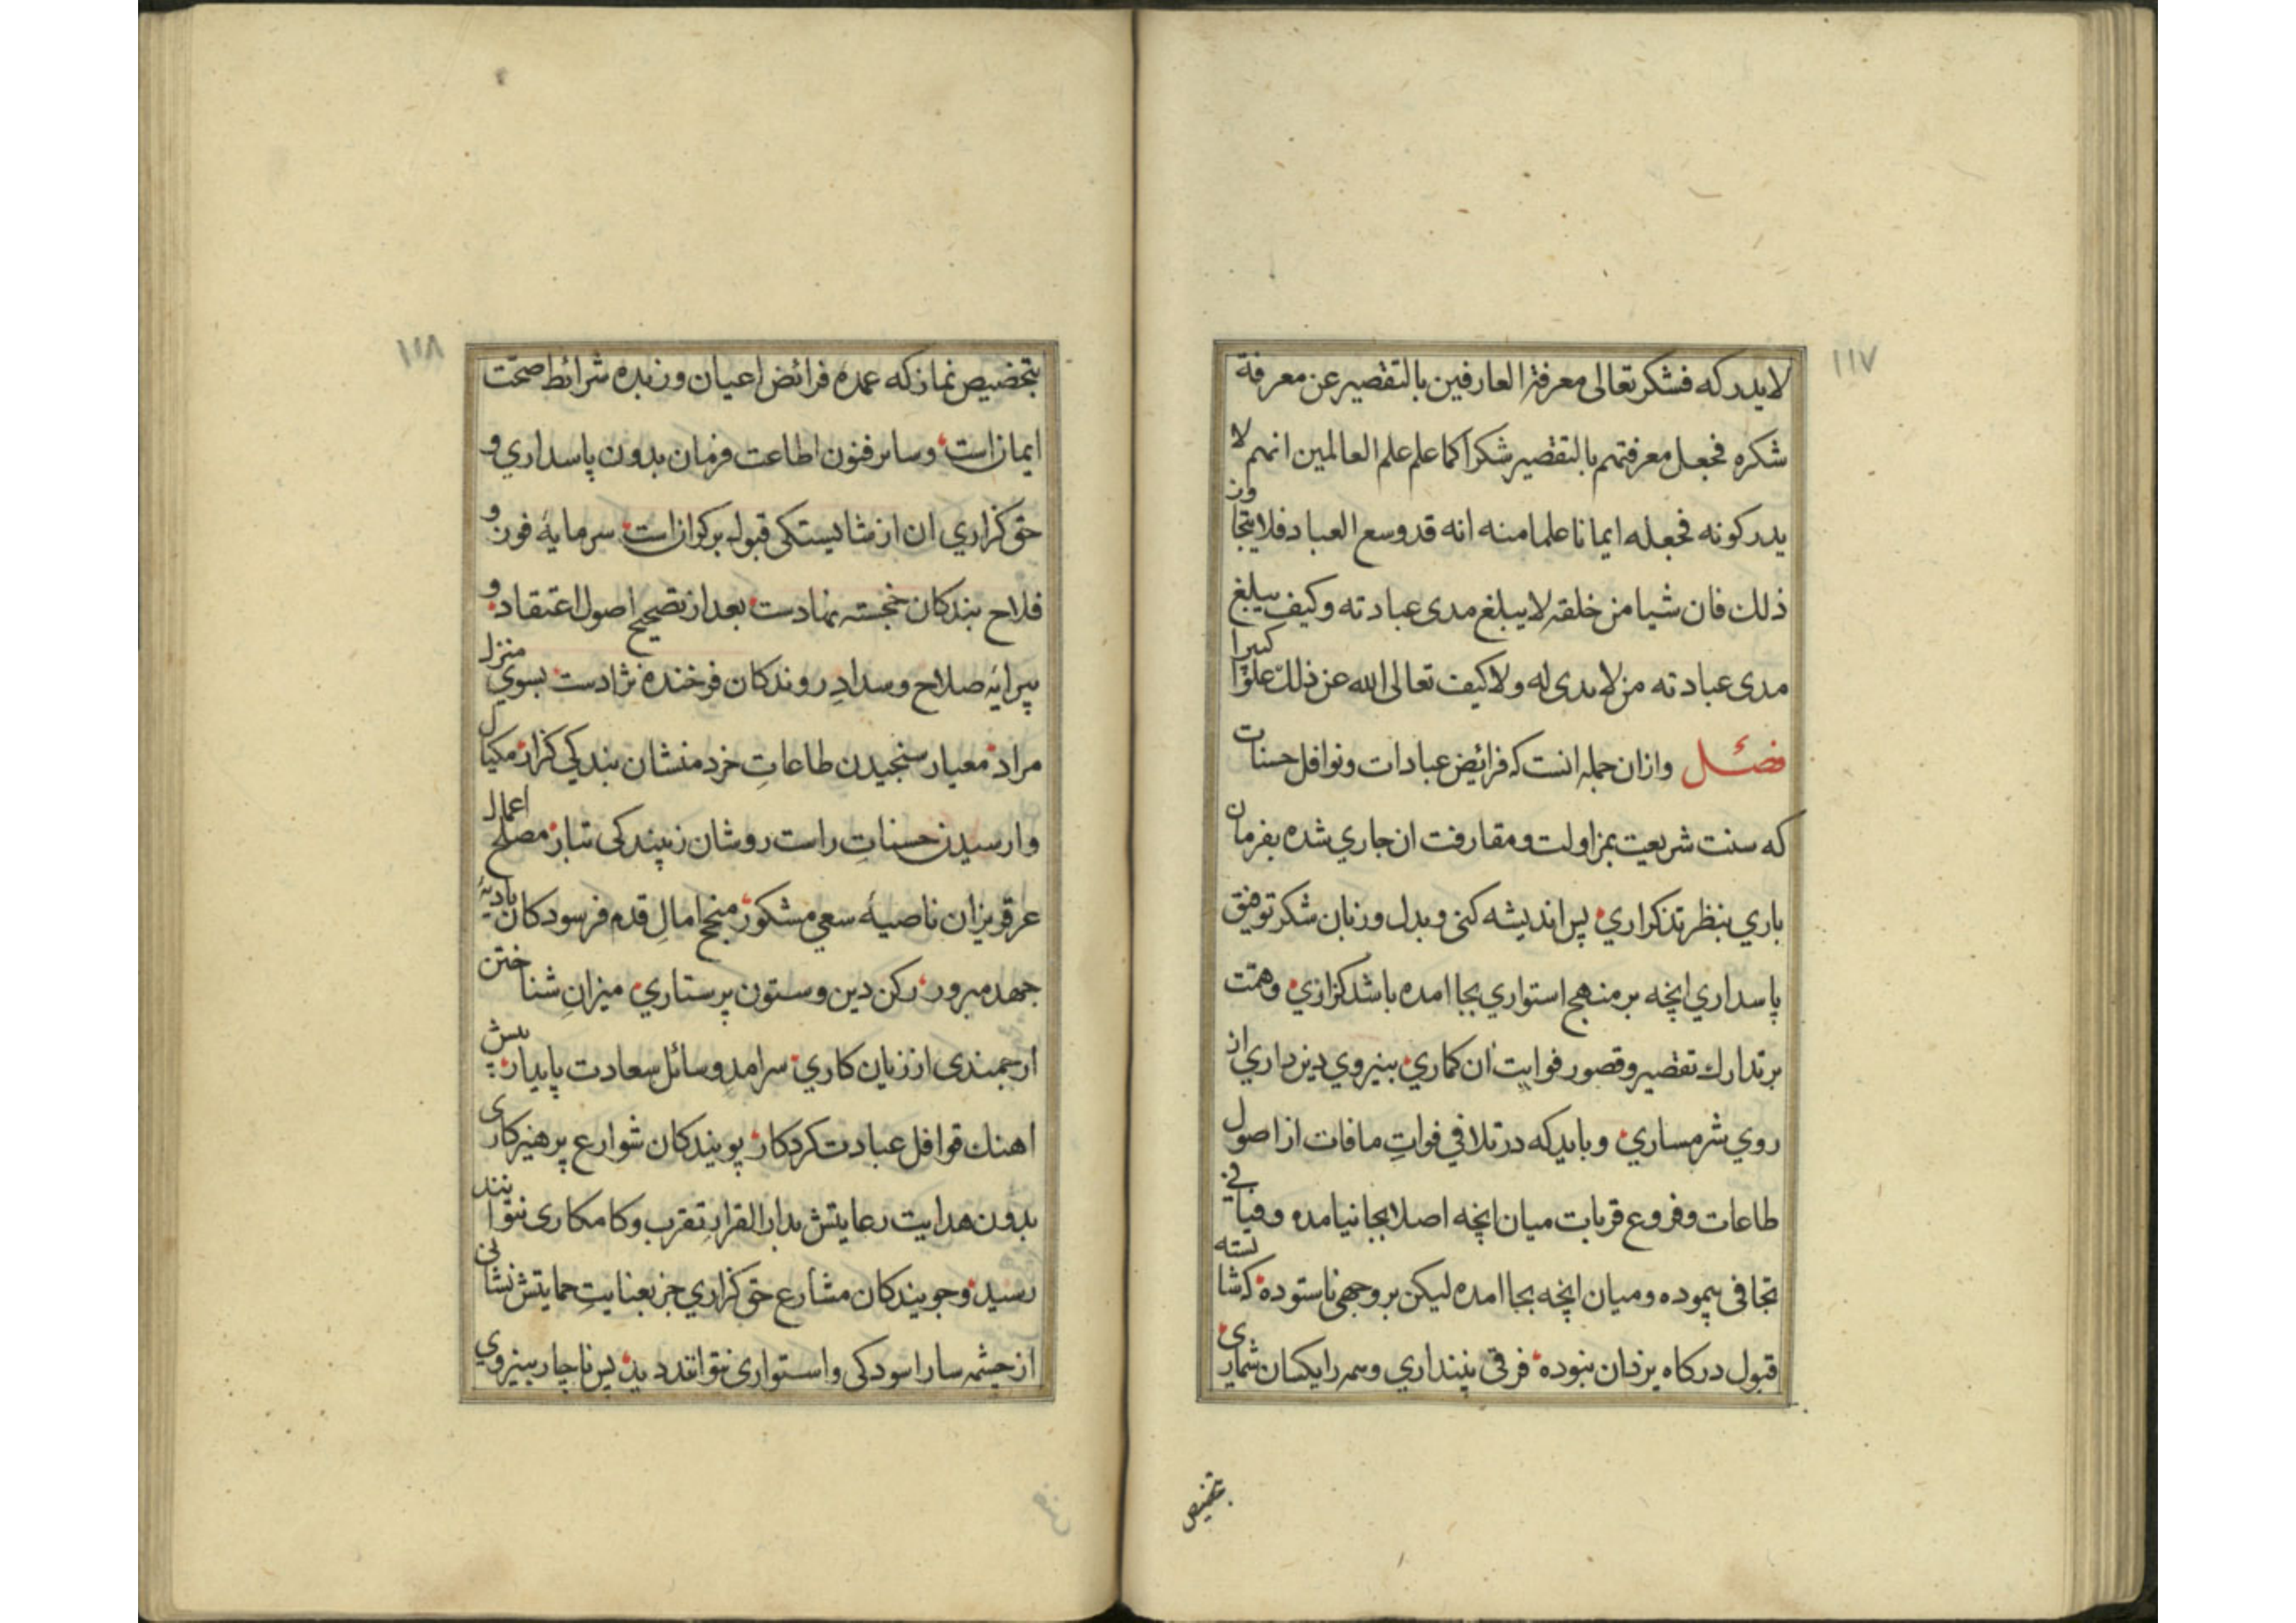 ١١٧
لايدركه فشكر تعالى معرفة العارفين بالتقصير عن معرفة
شكره فجعل معرفتهم بالتقصير شكرا كما علم علم العالمين انهم لا
يدركونه فجعله ايمانا علما منه انه قد وسع العباد فلا يتجاوز
ذلك فان شيا من خلقه لا يبلغ مدى عبادته وكيف يبلغ
مدى عبادته من لا مدى له ولا كيف تعالى الله عن ذلك علوا كبيرا
فصل وازان جمله انست كه فرائض عبادات ونوافل حسنات
كه سنت شريعت بمزاولت ومقارفت ان جاري شده بفرمان
باري بنظر تذكراري پس انديشه كنى وبدل وزبان شكر توفيق
پاسداري انچه بر منهج استواري بجا امده باشد كزاري وهمت
بر تدارك تقصير وقصور فوايت ان كماري بنيروي دين داري از
روي شرمساري وبايد كه در تلافي فوات مافات از اصول
طاعات وفروع قربات ميان انچه اصلا بجا نيامده وفيافي
تجافى پيموده وميان انچه بجا امده ليكن بر وجهى ناستوده كه شايسته
قبول دركاه يزدان نبوده فرقى نپنداري وسر رايكسان شماري
بتخصيص
١١٨
بتخصيص نماز كه عمده فرائض اعيان وزبده شرائط صحت
ايمان است وساير فنون اطاعت فرمان بدون پاسداري و
حق كزاري ان از شايستكى قبول بركران است سرمايه فوز و
فلاح بندكان خجسته نهادست بعد از تصحيح اصول اعتقاد و
پيرايه صلاح وسداد روندكان فرخنده نژادست بسوي منزل
مراد معيار سنجيدن طاعات خردمنشان بندكي كزار مكيال
وارسيدن حسنات راست روشان زيبندكى تبار مصلح اعمال
عرق ريزان ناصيه سعي مشكور منجح امال قدم فرسودكان باديه
جهد مبرور ركن دين وستون پرستاري ميزان شناختن
ارجمندى از زيان كاري سرامد وسائل سعادت پايدار پيش
اهنك قوافل عبادت كردكار پويندكان شوارع پرهيزكاري
بدون هدايت رعايتش بدار القرار تقرب وكامكارى نتوانند
رسيد وجويندكان مشارع حق كزاري جز بعنايت حمايتش نشانى
از چشمه سار اسودكى واستوارى نتوانند ديد پس ناچار بنيروي